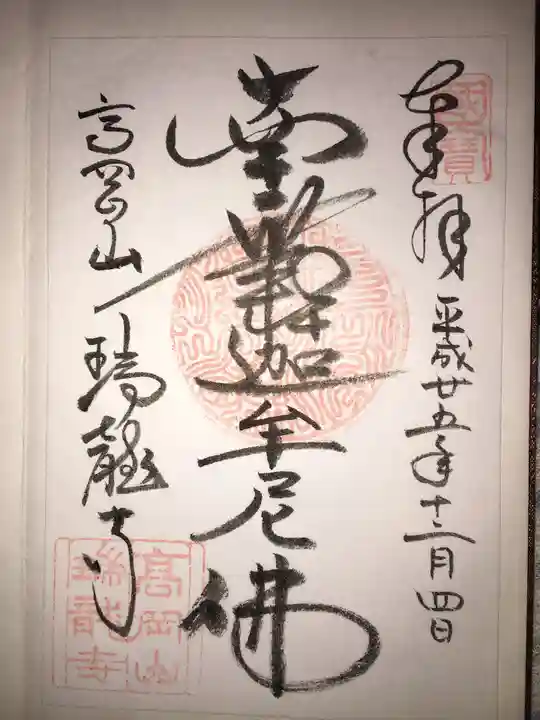 國寶
奉拝 平成廿五年十二月四日
南無釋迦牟尼佛
高岡山 瑞龍寺
高岡山
瑞龍寺